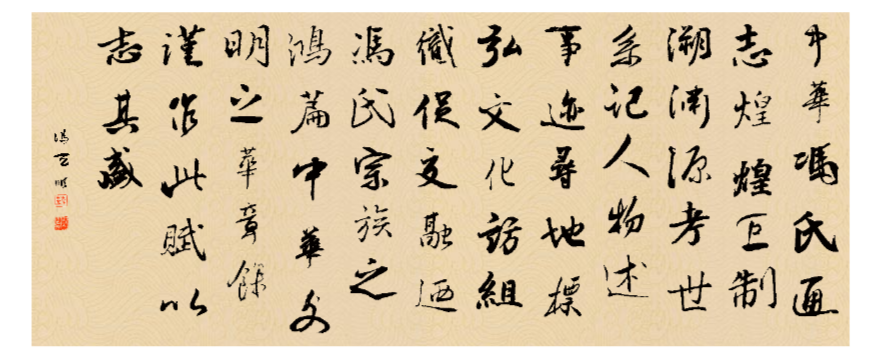 中華馮氏通
志煌煌巨制
溯渊源考世
系记人物述
事迹尋地標
弘文化訪組
織促交融迺
馮氏宗族之
鴻篇中華文
明之華章餘
謹作此賦以
志其盛